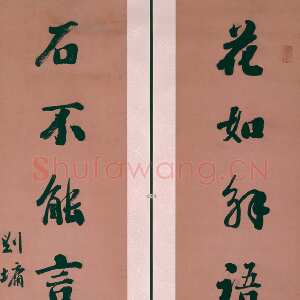 花如解语
石不能言
刘墉
Shufawang.CN